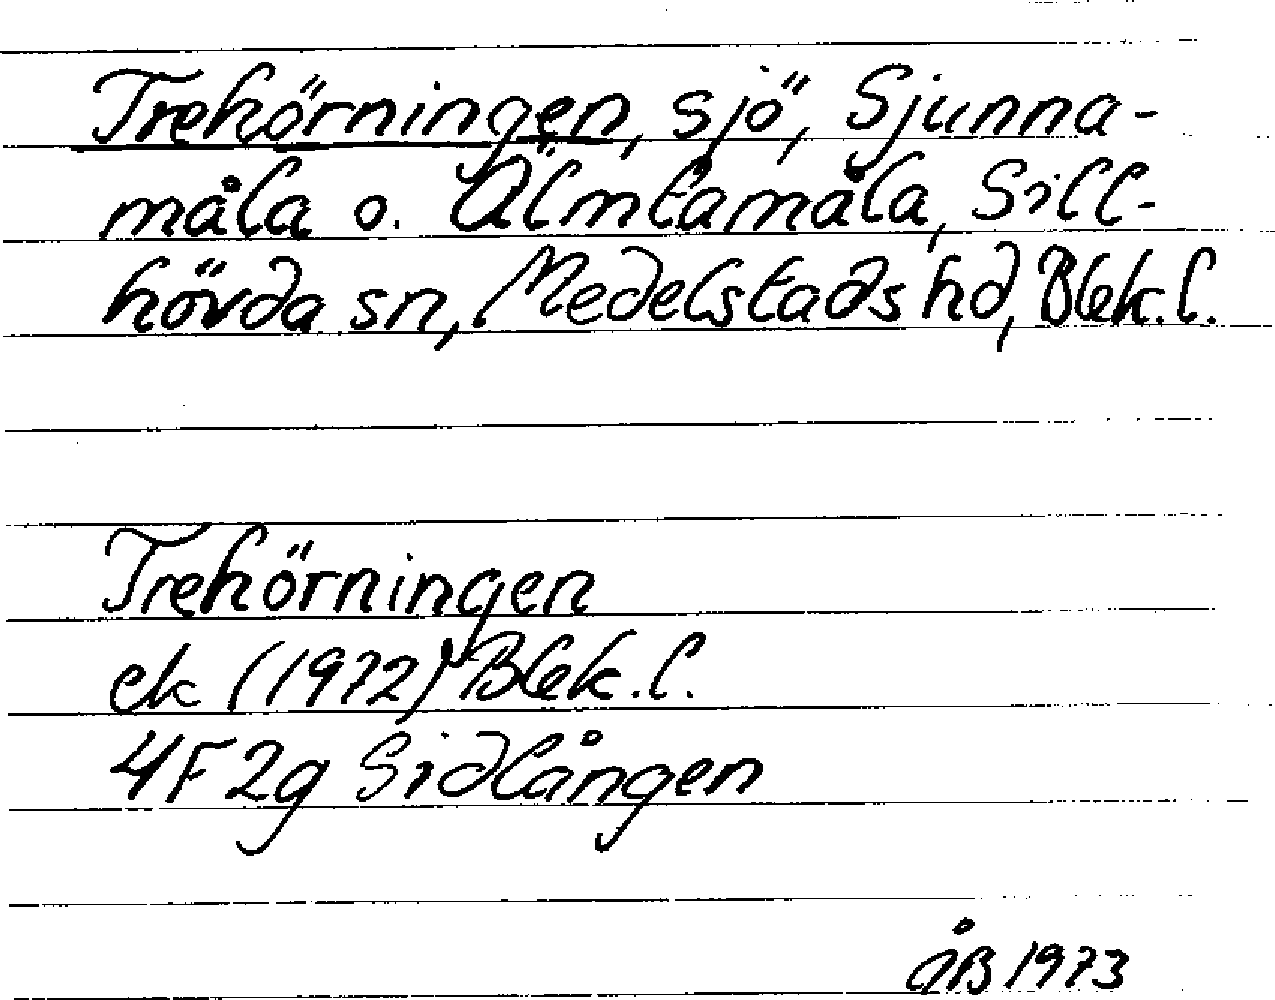 Trehörningen, sjö, Sjunna-
måla o. Älmtamåla, Sill-
hövda sn, Medelstads hd, Blek. l.
Trehörningen
ek (1972) Blek. l.
4F 2g Sidlången
ÅB 1973